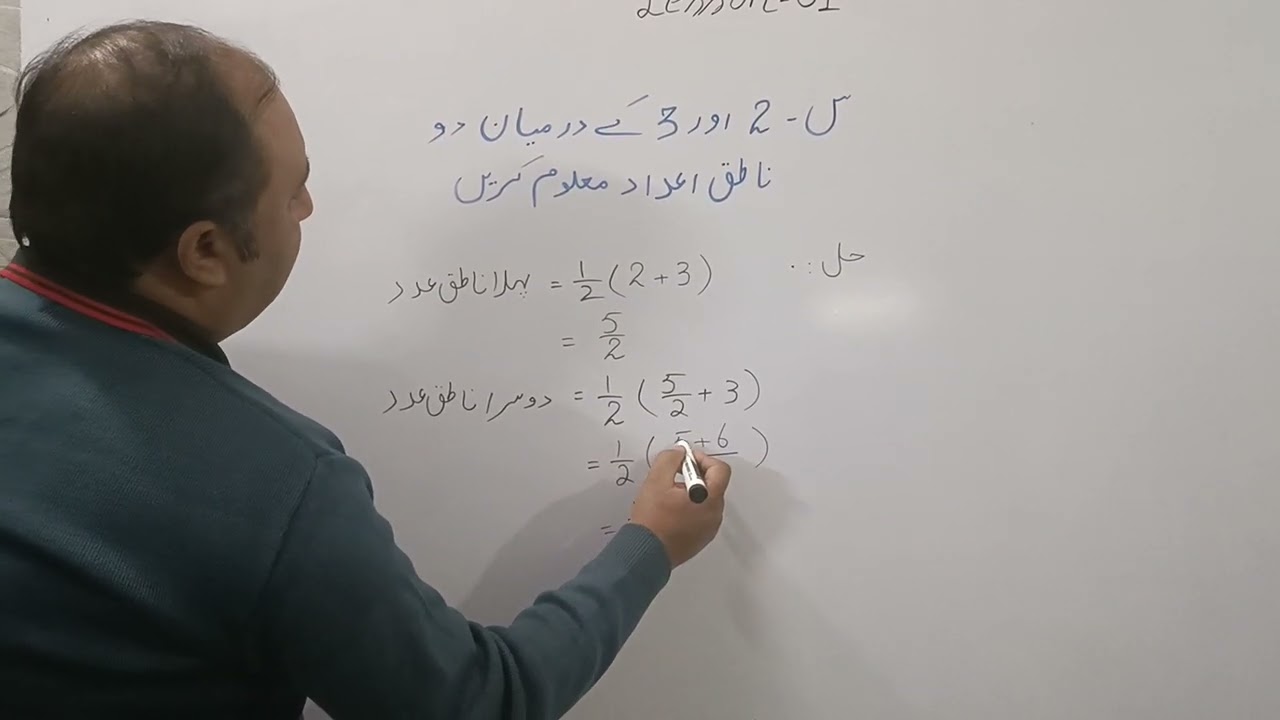 Lesson-01
س - 2 اور 3 کے درمیان دو
ناطق اعداد معلوم کریں
حل :.
پہلا ناطق عدد = 1/2 (2 + 3)
= 5/2
دوسرا ناطق عدد = 1/2 (5/2 + 3)
= 1/2 (5+6
=